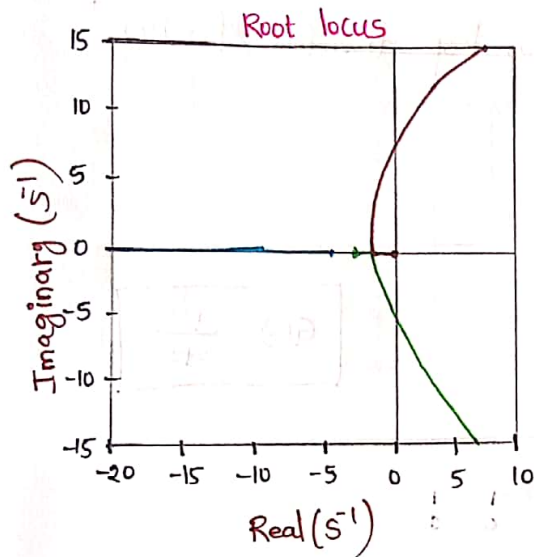 Root locus
15
10
5
0
-5
-10
-15
Imaginarg (s⁻¹)
-20 -15 -10 -5 0 5 10
Real (s⁻¹)